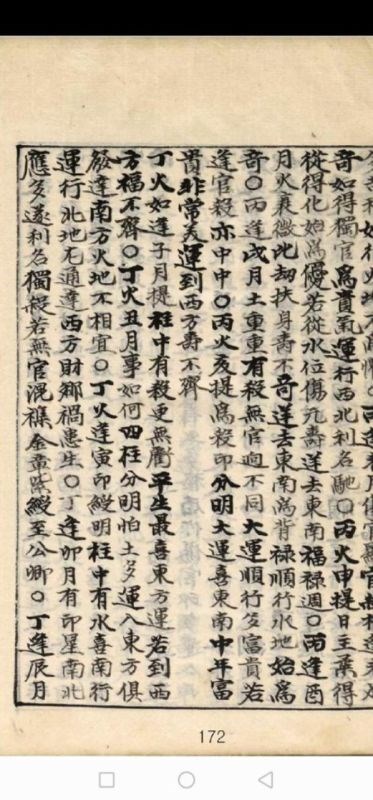 奇如得獨官爲貴氣運行西北利名馳〇丙火申提日主喪得
從得化始爲優若從水位傷元壽逆去東南福祿週〇丙逢酉
月火衰微此刼扶身壽不奇逆去東南爲背祿順行水地始爲
奇〇丙逢戌月土重重有殺無官逈不同大運順行多富貴若
逢官殺亦中中〇丙火亥提爲殺印分明大運喜東南中年富
貴非常美運到西方壽不齊
丁火如逢子月提柱中有殺更無衝平生最喜東方運若到西
方福不齊〇丁火丑月事如何四柱分明怕土多運入東方俱
發達南方火地不相宜〇丁火逢寅印綬明柱中有水喜南行
運行北地尤通達西方財鄉禍患生〇丁逢卯月有印星南北
應多遂利名獨殺若無官混襍金章紫綬至公卿〇丁逢辰月
172